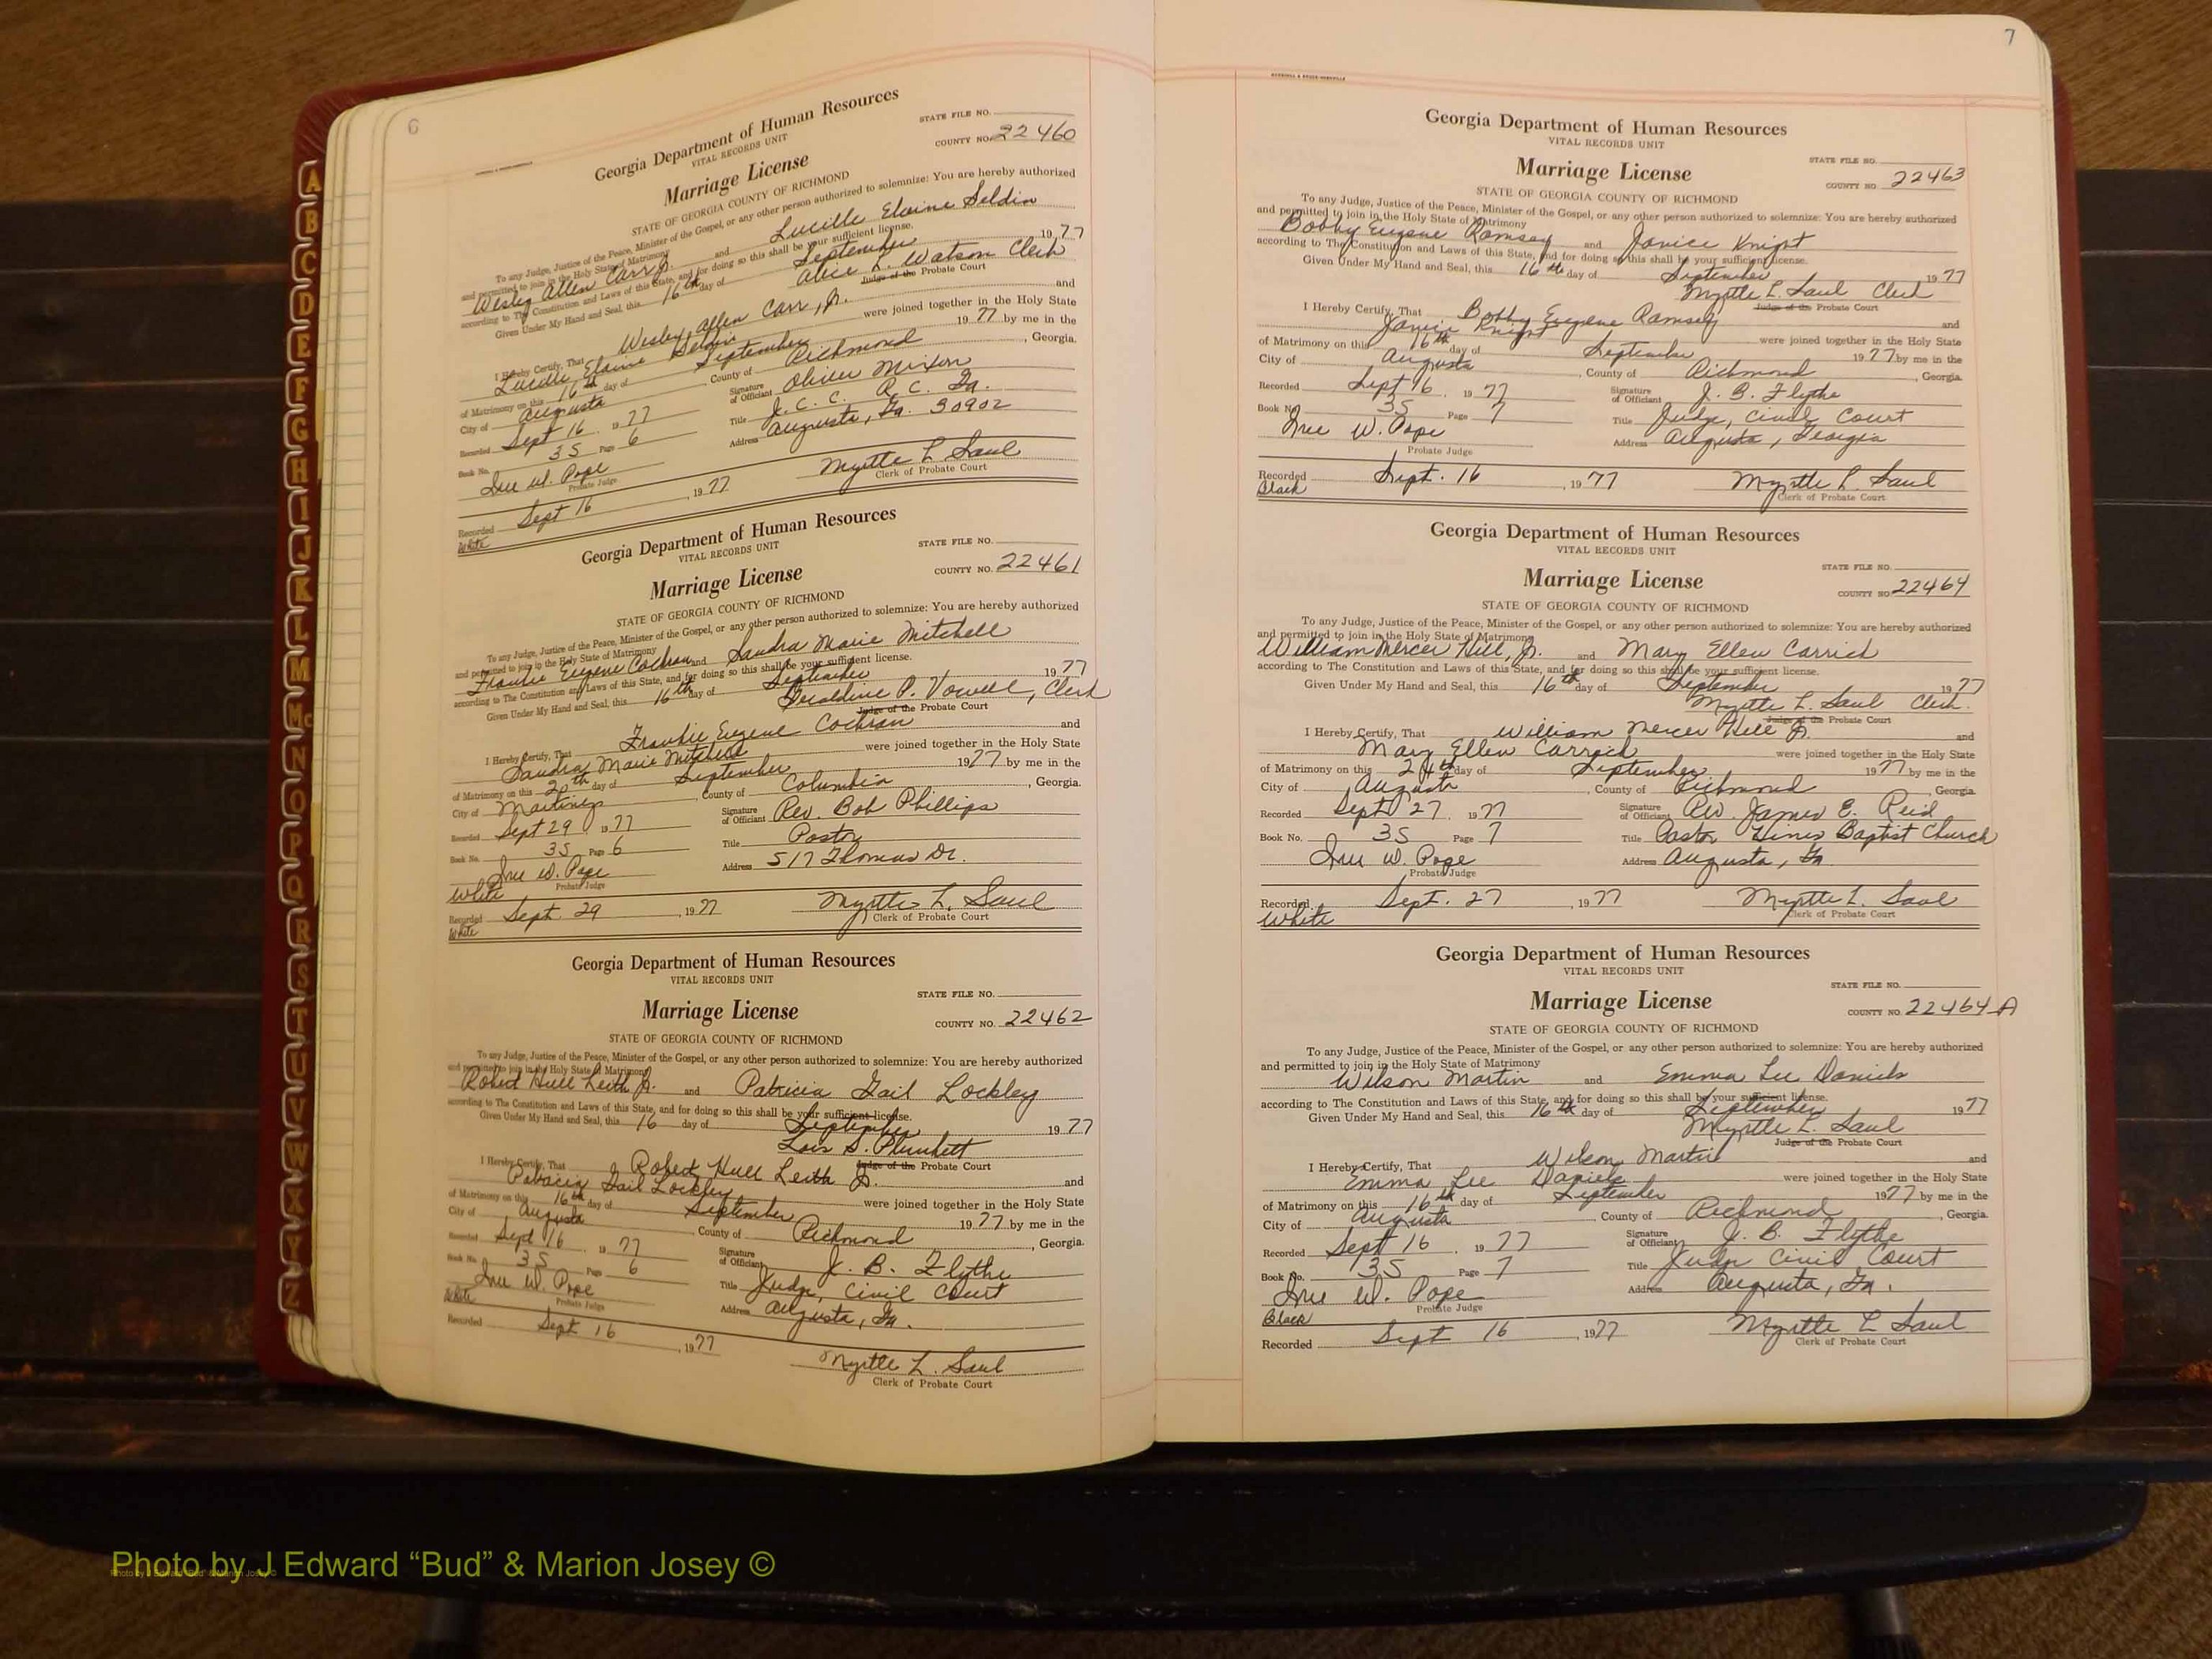 6
Georgia Department of Human Resources
VITAL RECORDS UNIT
STATE FILE NO.
Marriage License
COUNTY NO. 22460
STATE OF GEORGIA COUNTY OF RICHMOND
To any Judge, Justice of the Peace, Minister of the Gospel, or any other person authorized to solemnize: You are hereby authorized
and permitted to join in the Holy State of Matrimony
Wesley Allen Carr Jr. and Lucille Elaine Seldin
according to The Constitution and Laws of this State, and for doing so this shall be your sufficient license.
Given Under My Hand and Seal, this 16th day of September 1977
Alice L. Watson Clerk
Judge of the Probate Court
I Hereby Certify, That Wesley Allen Carr, Jr. and
Lucille Elaine Seldin were joined together in the Holy State
of Matrimony on this 16th day of September 1977 by me in the
City of Augusta County of Richmond, Georgia.
Recorded Sept 16 1977 Signature of Officiant Oliver Mixon
Book No. 35 Page 6 Title J. C. C. R. C. Ga.
Iree W. Pope Address Augusta, Ga. 30902
Probate Judge
Recorded Sept 16, 1977 Myrtle L Saul
White Clerk of Probate Court
Georgia Department of Human Resources
VITAL RECORDS UNIT
STATE FILE NO.
Marriage License
COUNTY NO. 22461
STATE OF GEORGIA COUNTY OF RICHMOND
To any Judge, Justice of the Peace, Minister of the Gospel, or any other person authorized to solemnize: You are hereby authorized
and permitted to join in the Holy State of Matrimony
Frankie Eugene Cochran and Sandra Marie Mitchell
according to The Constitution and Laws of this State, and for doing so this shall be your sufficient license.
Given Under My Hand and Seal, this 16th day of September 1977
Geraldine P. Vowell, Clerk
Judge of the Probate Court
I Hereby Certify, That Frankie Eugene Cochran and
Sandra Marie Mitchell were joined together in the Holy State
of Matrimony on this 20th day of September 1977 by me in the
City of Martinez, County of Columbia, Georgia.
Recorded Sept 29 1977 Signature of Officiant Rev. Bob Phillips
Book No. 35 Page 6 Title Pastor
Iree W. Pope Address 517 Thomas Dr.
White Probate Judge
Recorded Sept. 29, 1977 Myrtle L. Saul
White Clerk of Probate Court
Georgia Department of Human Resources
VITAL RECORDS UNIT
STATE FILE NO.
Marriage License
COUNTY NO. 22462
STATE OF GEORGIA COUNTY OF RICHMOND
To any Judge, Justice of the Peace, Minister of the Gospel, or any other person authorized to solemnize: You are hereby authorized
and permitted to join in the Holy State of Matrimony
Robert Hull Leith Jr. and Patricia Gail Lockley
according to The Constitution and Laws of this State, and for doing so this shall be your sufficient license.
Given Under My Hand and Seal, this 16 day of September 1977
Lois S. Plunkett
Judge of the Probate Court
I Hereby Certify, That Robert Hull Leith Jr. and
Patricia Gail Lockley were joined together in the Holy State
of Matrimony on this 16th day of September 1977 by me in the
City of Augusta, County of Richmond, Georgia.
Recorded Sept 16 1977 Signature of Officiant J. B. Flythe
Book No. 35 Page 6 Title Judge, Civil Court
Iree W. Pope Address Augusta, Ga.
White Probate Judge
Recorded Sept 16, 1977 Myrtle L. Saul
Clerk of Probate Court
7
Georgia Department of Human Resources
VITAL RECORDS UNIT
STATE FILE NO.
Marriage License
COUNTY NO 22463
STATE OF GEORGIA COUNTY OF RICHMOND
To any Judge, Justice of the Peace, Minister of the Gospel, or any other person authorized to solemnize: You are hereby authorized
and permitted to join in the Holy State of Matrimony
Bobby Eugene Ramsey and Janice Knight
according to The Constitution and Laws of this State, and for doing so this shall be your sufficient license.
Given Under My Hand and Seal, this 16th day of September 1977
Myrtle L. Saul Clerk
Judge of the Probate Court
I Hereby Certify, That Bobby Eugene Ramsey and
Janice Knight were joined together in the Holy State
of Matrimony on this 16th day of September 1977 by me in the
City of Augusta, County of Richmond, Georgia.
Recorded Sept 16, 1977 Signature of Officiant J. B. Flythe
Book No. 35 Page 7 Title Judge, Civil Court
Iree W. Pope Address Augusta, Georgia
Probate Judge
Recorded Sept. 16, 1977 Myrtle L Saul
Black Clerk of Probate Court
Georgia Department of Human Resources
VITAL RECORDS UNIT
STATE FILE NO.
Marriage License
COUNTY NO 22464
STATE OF GEORGIA COUNTY OF RICHMOND
To any Judge, Justice of the Peace, Minister of the Gospel, or any other person authorized to solemnize: You are hereby authorized
and permitted to join in the Holy State of Matrimony
William Mercer Hill, Jr. and Mary Ellen Carrick
according to The Constitution and Laws of this State, and for doing so this shall be your sufficient license.
Given Under My Hand and Seal, this 16th day of September 1977
Myrtle L. Saul Clerk.
Judge of the Probate Court
I Hereby Certify, That William Mercer Hill Jr. and
Mary Ellen Carrick were joined together in the Holy State
of Matrimony on this 24th day of September 1977 by me in the
City of Augusta, County of Richmond, Georgia.
Recorded Sept 27, 1977 Signature of Officiant Rev. James E. Reid
Book No. 35 Page 7 Title Pastor Hines Baptist Church
Iree W. Pope Address Augusta, Ga
Probate Judge
Recorded Sept. 27, 1977 Myrtle L. Saul
White Clerk of Probate Court
Georgia Department of Human Resources
VITAL RECORDS UNIT
STATE FILE NO.
Marriage License
COUNTY NO. 22464-A
STATE OF GEORGIA COUNTY OF RICHMOND
To any Judge, Justice of the Peace, Minister of the Gospel, or any other person authorized to solemnize: You are hereby authorized
and permitted to join in the Holy State of Matrimony
Wilson Martin and Emma Lee Daniels
according to The Constitution and Laws of this State, and for doing so this shall be your sufficient license.
Given Under My Hand and Seal, this 16th day of September 1977
Myrtle L. Saul
Judge of the Probate Court
I Hereby Certify, That Wilson Martin and
Emma Lee Daniels were joined together in the Holy State
of Matrimony on this 16th day of September 1977 by me in the
City of Augusta, County of Richmond, Georgia.
Recorded Sept 16, 1977 Signature of Officiant J. B. Flythe
Book No. 35 Page 7 Title Judge Civil Court
Iree W. Pope Address Augusta, Ga.
Black Probate Judge
Recorded Sept 16, 1977 Myrtle L Saul
Clerk of Probate Court
A
B
C
D
E
F
G
H
I
J
K
L
M
Mc
N
O
P
Q
R
S
T
U
V
W
X
Y
Z
Photo by J Edward “Bud” & Marion Josey ©
Photo by J Edward “Bud” & Marion Josey ©